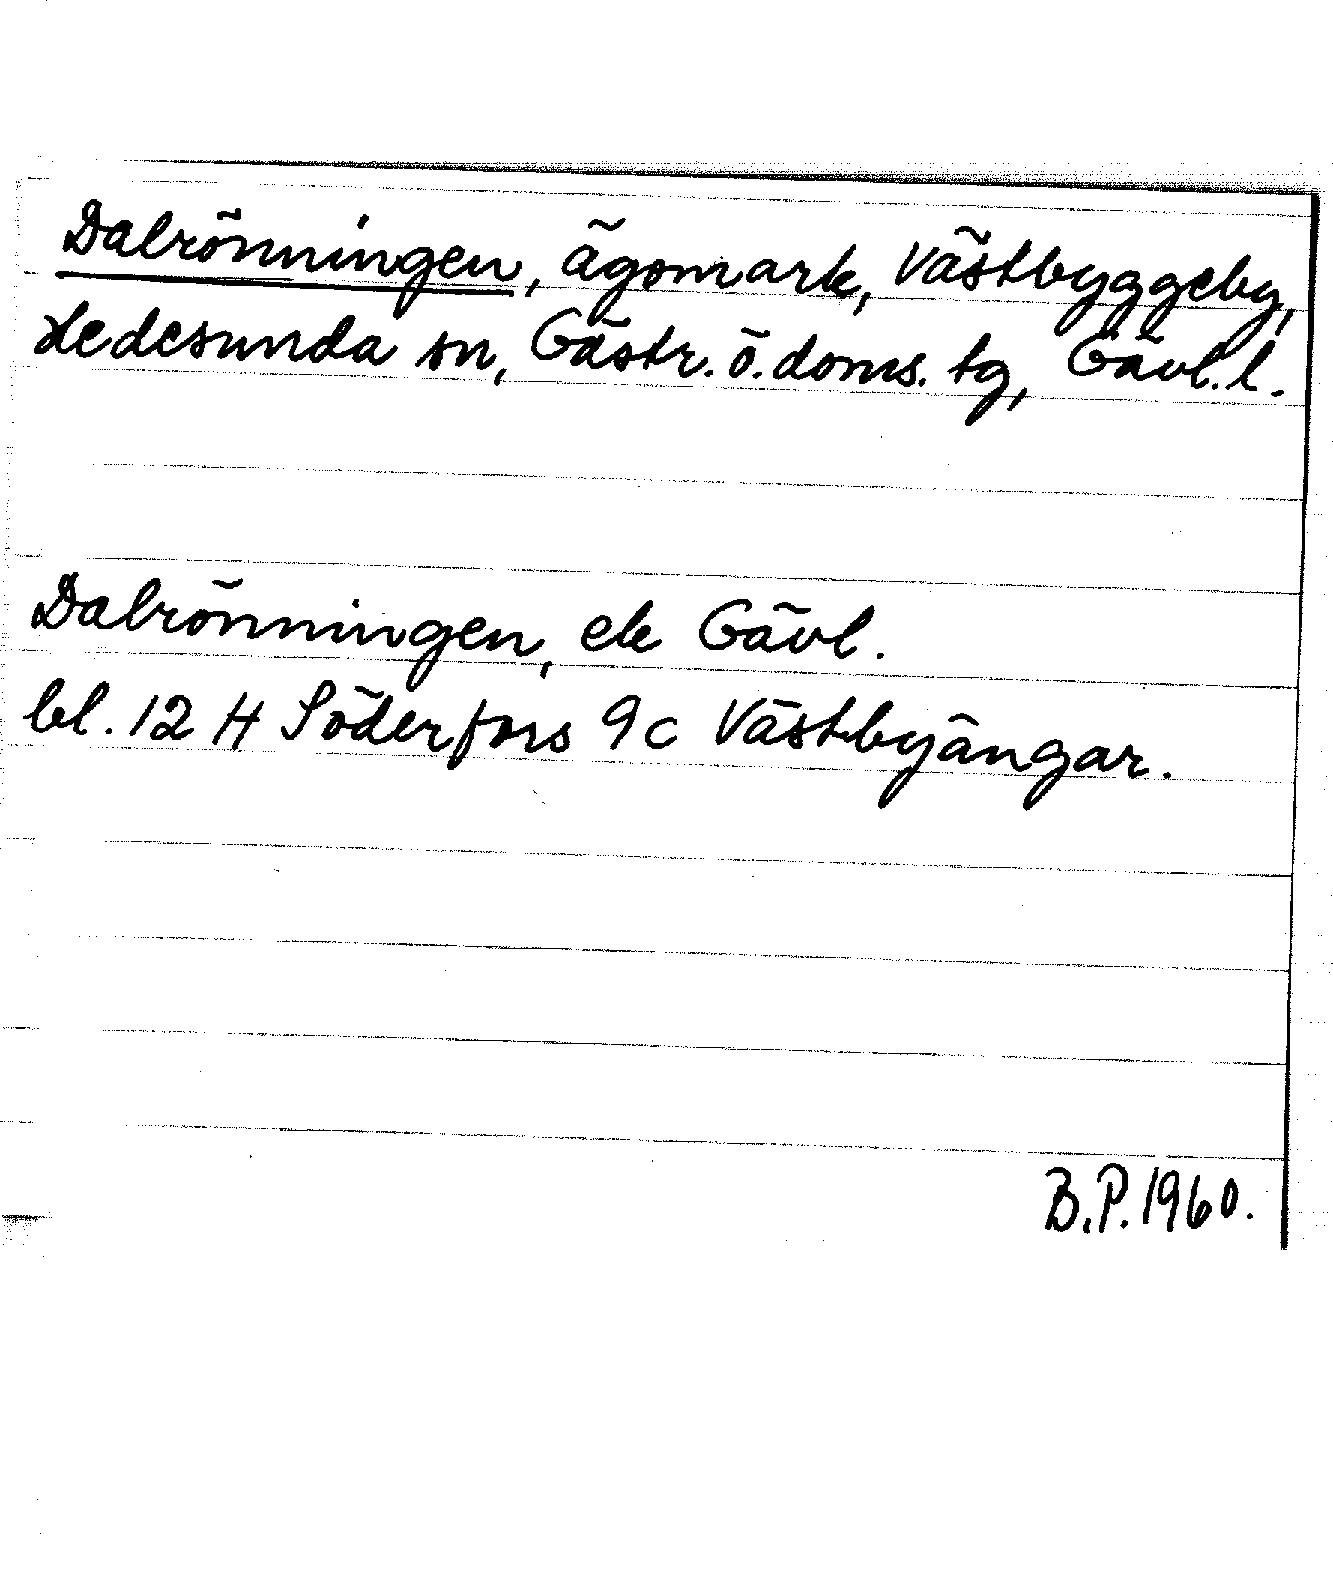 Dalrönningen, ägomark, Västbyggeby,
Hedesunda sn, Gästr. ö. doms. tg, Gävl. l.
Dalrönningen, ek Gävl.
bl. 12 H Söderfors 9c Västbyängar.
B.P. 1960.